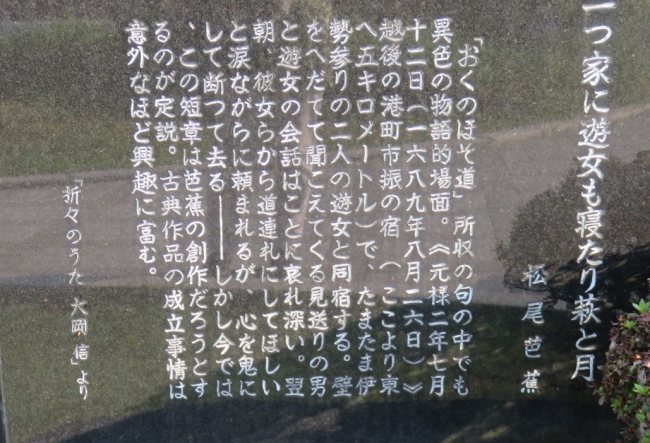 一つ家に遊女も寝たり萩と月
松尾芭蕉
「おくのほそ道」所収の句の中でも
異色の物語的場面。《元禄二年七月
十二日（一六八九年八月二六日）》
越後の港町市振の宿（ここより東
へ五キロメートル）で、たまたま伊
勢参りの二人の遊女と同宿する。壁
をへだてて聞こえてくる見送りの男
と遊女の会話はことに哀れ深い。翌
朝、彼女らから道連れにしてほしい
と涙ながらに頼まれるが、心を鬼に
して断つて去る――しかし今では
、この短章は芭蕉の創作だろうとす
るのが定説。古典作品の成立事情は
意外なほど興趣に富む。
「折々のうた 大岡 信」より